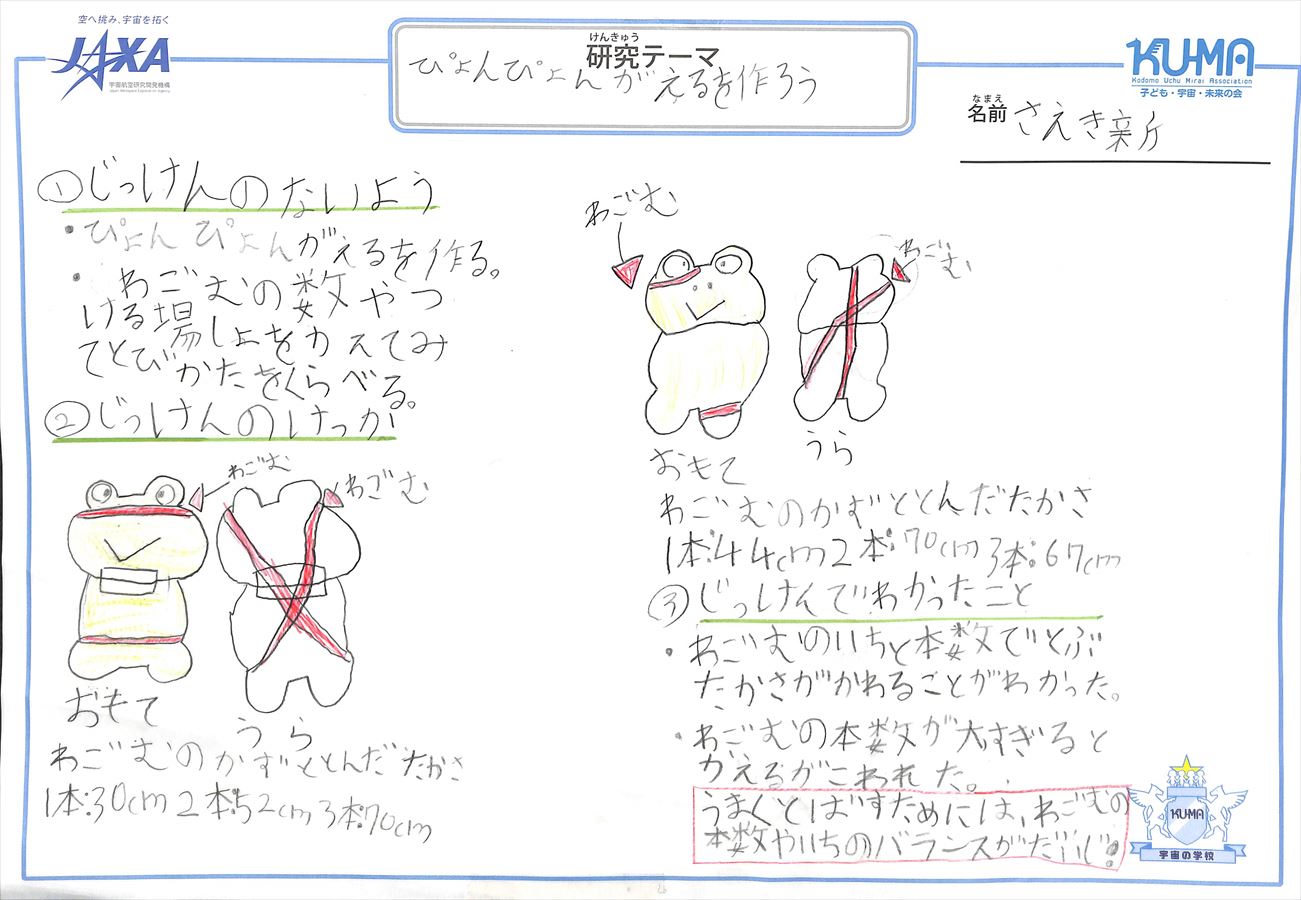 空へ挑み、宇宙を拓く
JAXA
宇宙航空研究開発機構
Japan Aerospace Exploration Agency
けんきゅう
研究テーマ
ぴょんぴょんがえるを作ろう
KU-MA
Kodomo Uchu Mirai Association
子ども・宇宙・未来の会
なまえ
名前 さえき
①じっけんのないよう
・ぴょんぴょんがえるを作る。
・わごむの数やつ
ける場しょをかえてみ
てとびかたをくらべる。
②じっけんのけっか
わごむ
わごむ
おもて
うら
わごむのかずととんだたかさ
1本:30cm 2本:52cm 3本:70cm
わごむ
わごむ
おもて
うら
わごむのかずととんだたかさ
1本:44cm 2本:70cm 3本:67cm
③じっけんでわかったこと
・わごむのいちと本数でとぶ
たかさがかわることがわかった。
・わごむの本数が大すぎると
がえるがこわれた。
うまくとばすためには、わごむの
本数やいちのバランスがだいじ!
KU-MA
宇宙の学校